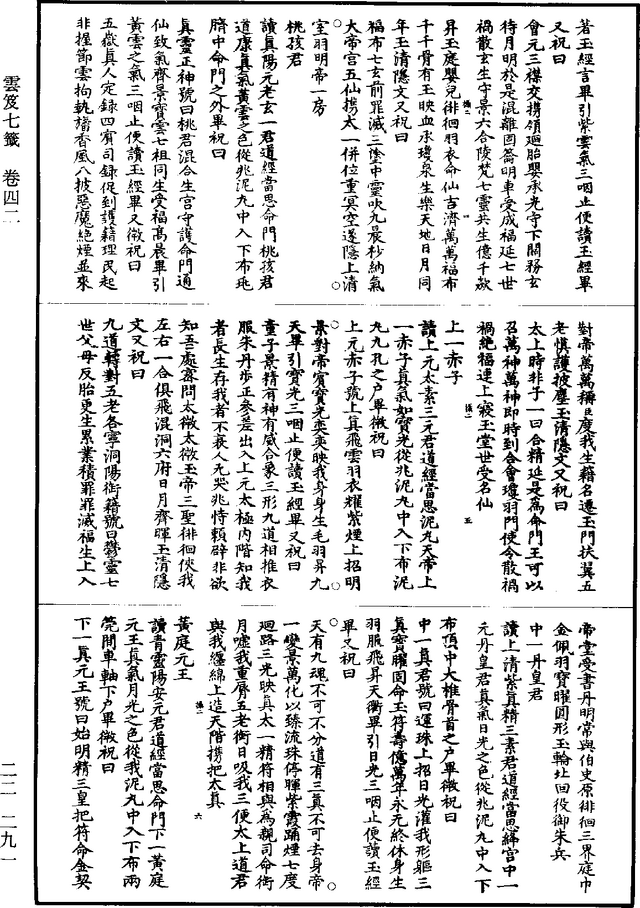 若玉經言畢引紫雲氣三咽止便讀玉經畢
又祝曰
會元三襟交攜領迴胎嬰承光守下關務玄
待月明於是混離圓蓊明車受成福延七世
禍散玄生守景六合陵梵七靈共生億千欻
昇玉庭嬰兒徘徊羽衣命仙吉濟萬萬福布
千千骨有玉映血承瓊泉生樂天地日月同
年玉清隱文又祝曰
福布七玄前罪滅三塗中靈吹九晨杪納氣
大帝宮五仙攜太一併位重冥空遂隱上清
室羽明帝一房
桃孩君
讀真陽元老玄一君道經當思命門桃孩君
道康真氣黃雲之色從兆泥丸中入下布兆
臍中命門之外畢祝曰
真靈正神號曰桃君混合生宮守護命門通
仙致氣齊景寶雲七祖同生受福高晨畢引
黃雲之氣三咽止便讀玉經畢又微祝曰
五嶽真人定錄四賓司錄促到護籍理民起
非握節雲拘執㩉香風八披惡魔絕煙並來
對帝萬萬稱臣度我生籍名遷玉門扶翼五
老慎護披塵玉清隱文又祝曰
太上時非子一曰合精延是為命門王可以
召萬神萬神即時到合會瓊羽門使令散禍
禍絕福連上寢玉堂世受名仙
上一赤子
讀上元太素三元君道經當思泥丸天帝上
一赤子真氣如寶光從兆泥丸中入下布泥
丸九孔之戶畢微祝曰
上元赤子號上真飛雲羽衣耀紫煙上招明
景對帝賓寶光奕奕映我身身生毛羽昇九
天畢引寶光三咽止便讀玉經畢又祝曰
童子景精有神有威合象三形九道相推衣
服朱丹步正參差出入上元太極內階知我
者長生存我者不衰人无哭兆恃賴辟非欲
知吾處審問太微太微玉帝三聖徘徊俠我
左右一合俱飛混洞六府日月齊暉玉清隱
文又祝曰
九道轉對五老各寧洞陽銜籍號曰鬱靈七
世父母反胎更生累業積罪罪滅福生上入
帝堂受書丹明常與伯史原徘徊三界庭巾
金佩羽寶曜圓形玉輪北回役御朱兵
中一丹皇君
讀上清紫真精三素君道經當思絳宮中一
元丹皇君真氣日光之色從兆泥丸中入下
布頂中大椎骨首之戶畢微祝曰
中一真君號曰運珠上招日光灌我形軀三
真寶曜固命玉符壽億萬年永元終休身生
羽服飛昇天衢畢引日光三咽止便讀玉經
畢又祝曰
天有九魂不可不分道有三真不可去身帝
一變景萬化以臻流珠停暉紫霞踊煙七度
迴路三光映真太一精符相與為親司命銜
月噓我重脣五老銜日吸我三便太上道君
與我纏綿上造天階攜把太真
黃庭元王
讀青靈陽安元君道經當思命門下一黃庭
元王真氣月光之色從我泥丸中入下布兩
筦間車軸下戶畢微祝曰
下一真元王號曰始明精三皇把符命金契
雲笈七籤　卷四二
二二－二九一